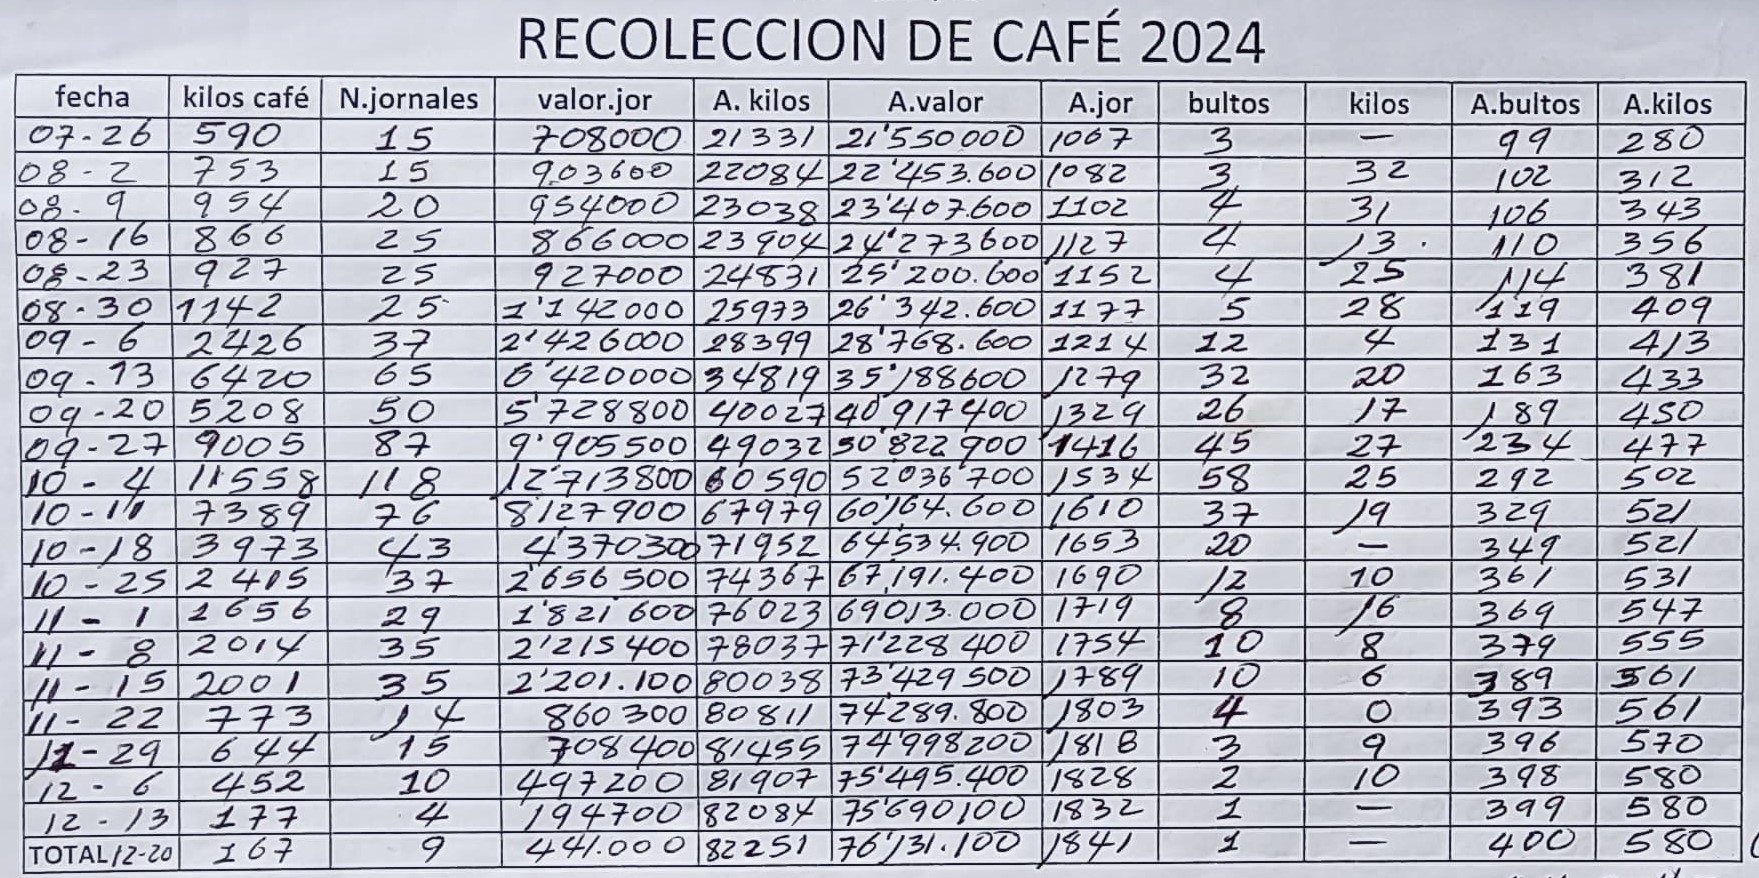 RECOLECCION DE CAFÉ 2024
fecha kilos café N.jornales valor.jor A. kilos A.valor A.jor bultos kilos A.bultos A.kilos
07-26 590 15 708000 21331 21'550000 1067 3 — 99 280
08-2 753 15 903600 22084 22'453.600 1082 3 32 102 312
08-9 954 20 954000 23038 23'407.600 1102 4 31 106 343
08-16 866 25 866000 23904 24'273600 1127 4 13 110 356
08-23 927 25 927000 24831 25'200.600 1152 4 25 114 381
08-30 1142 25 1'142000 25973 26'342.600 1177 5 28 119 409
09-6 2426 37 2'426000 28399 28'768.600 1214 12 4 131 413
09-13 6420 65 6'420000 34819 35'188600 1279 32 20 163 433
09-20 5208 50 5'728800 40027 40'917400 1329 26 17 189 450
09-27 9005 87 9'905500 49032 50'822900 1416 45 27 234 477
10-4 11558 118 12'713800 60590 52036700 1534 58 25 292 502
10-11 7389 76 8127900 67979 60164.600 1610 37 19 329 521
10-18 3973 43 4'370300 71952 64'534.900 1653 20 — 349 521
10-25 2415 37 2'656500 74367 67,191.400 1690 12 10 361 531
11-1 1656 29 1'821600 76023 69013.000 1719 8 16 369 547
11-8 2014 35 2'215400 78037 71'228400 1754 10 8 379 555
11-15 2001 35 2'201.100 80038 73'429500 1789 10 6 389 561
11-22 773 14 860300 80811 74'289.800 1803 4 0 393 561
11-29 644 15 708400 81455 74'998200 1818 3 9 396 570
12-6 452 10 497200 81907 75'495.400 1828 2 10 398 580
12-13 177 4 194700 82084 75'690100 1832 1 — 399 580
TOTAL 12-20 167 9 441.000 82251 76'131.100 1841 1 — 400 580